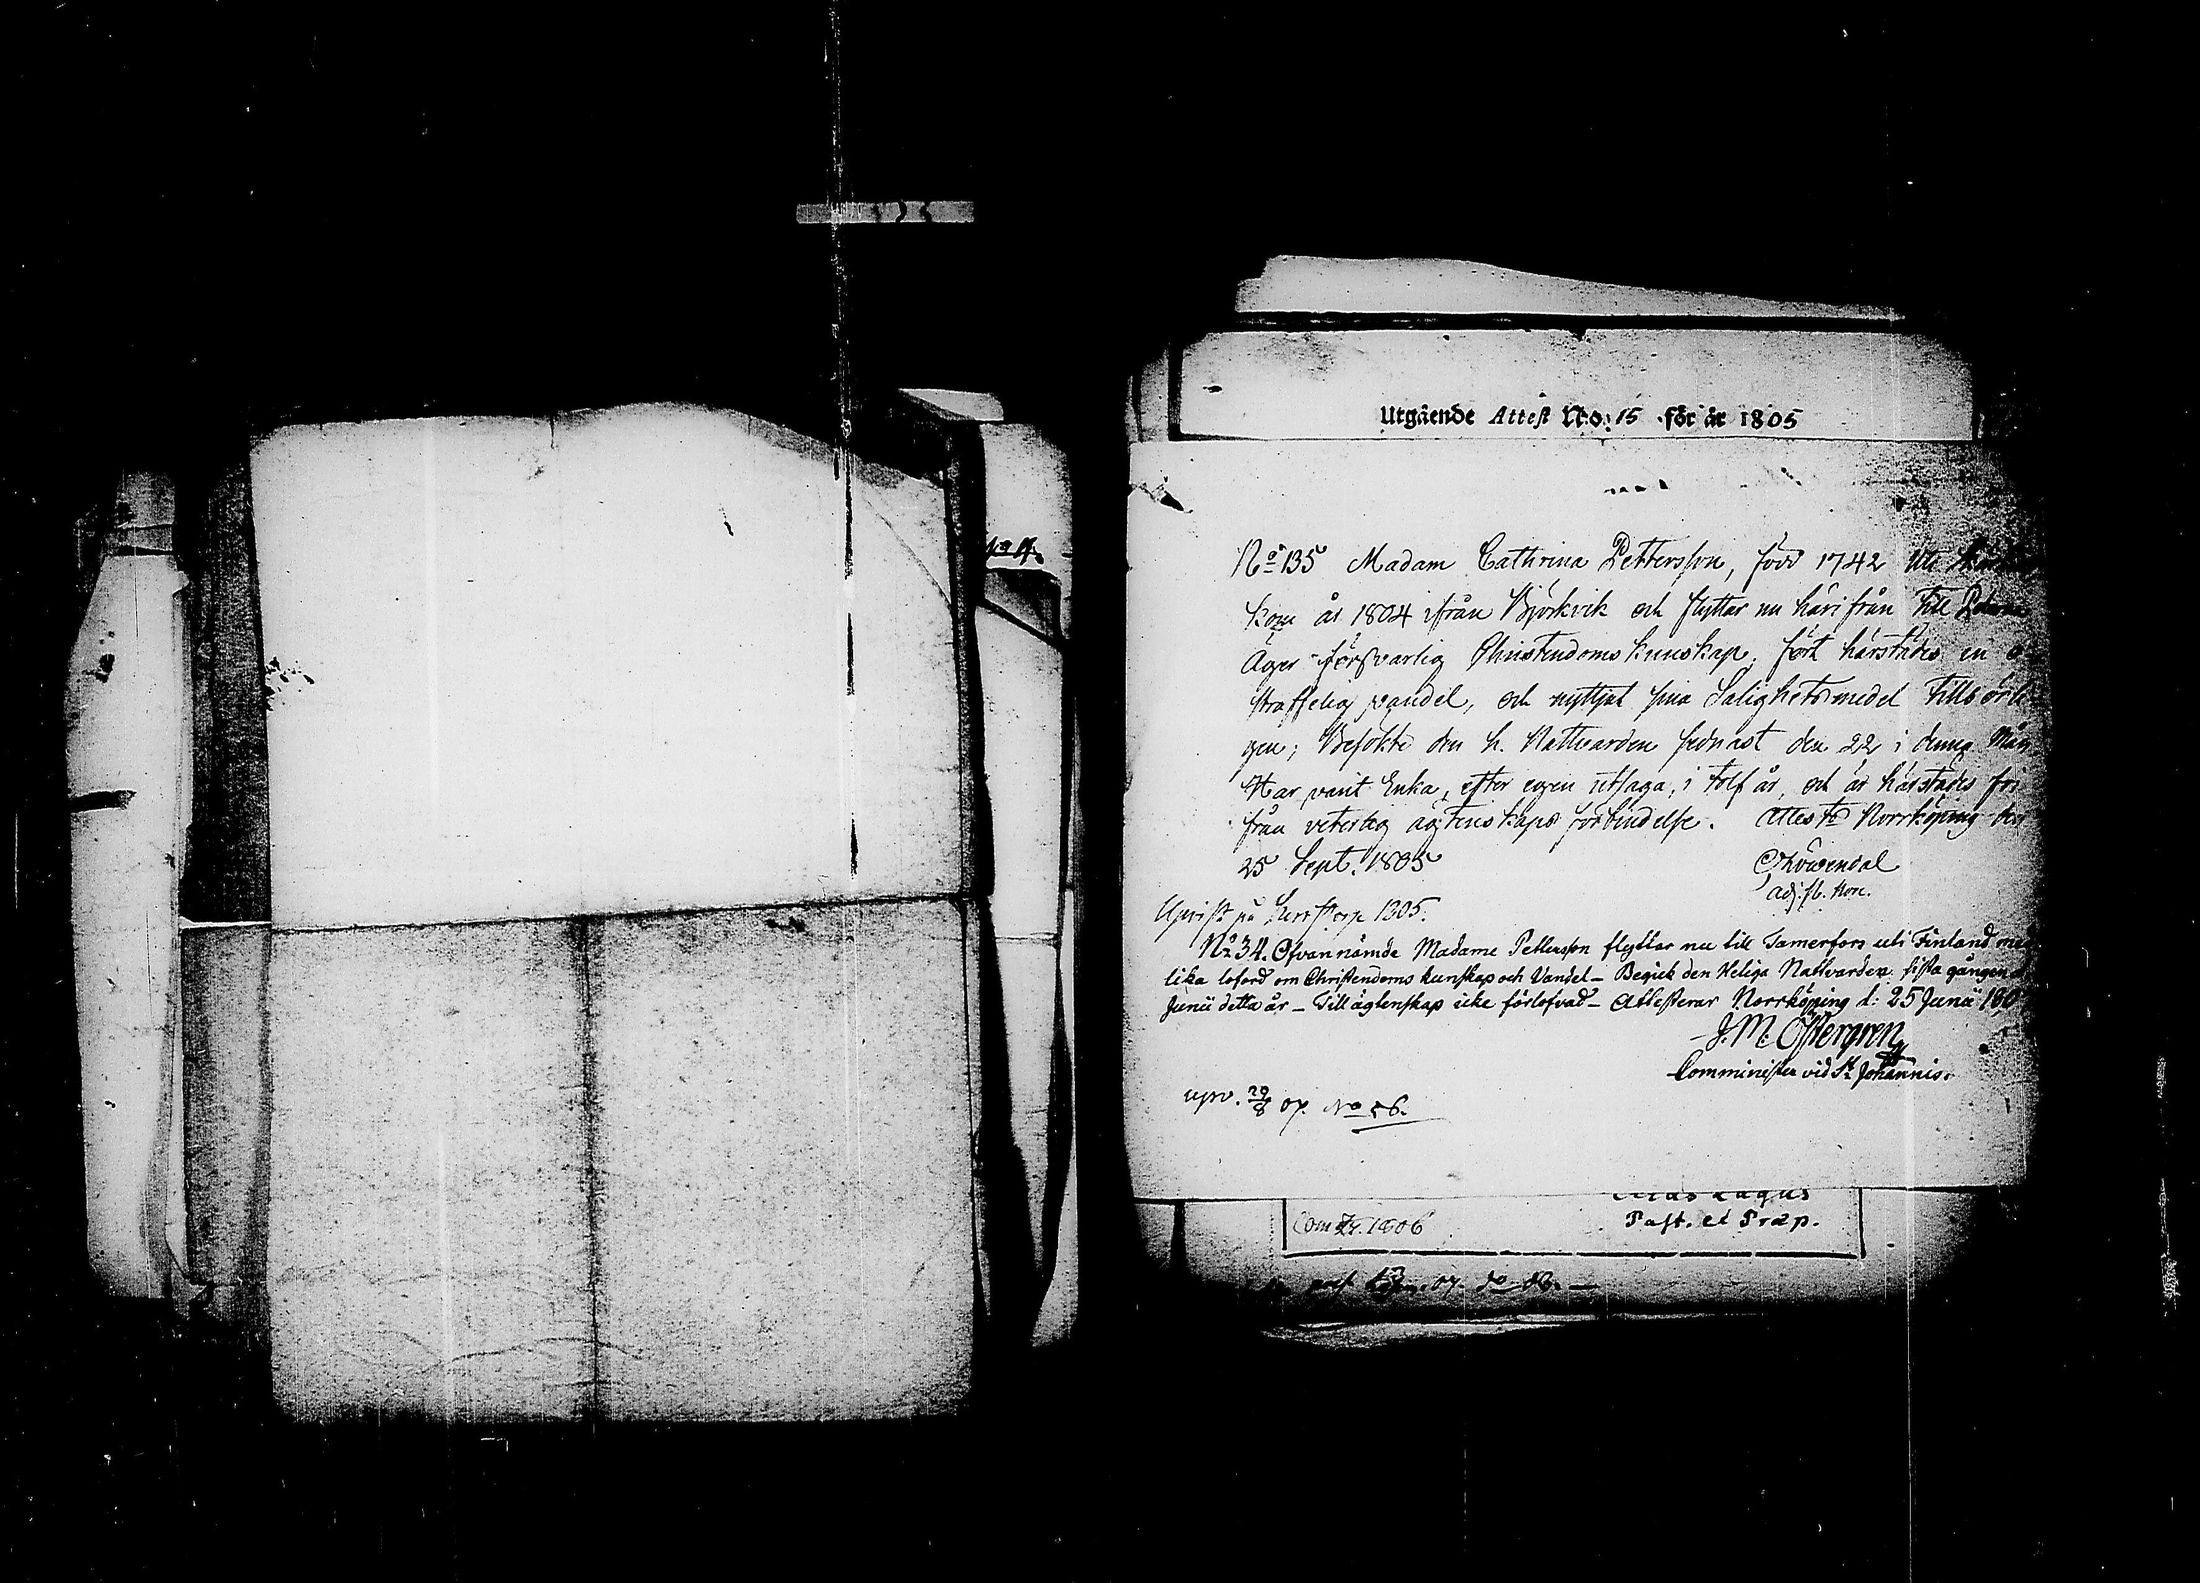 No 4.
Utgående Attest N:o: 15 för år 1805
No 135 Madam Cathrina Pettersson, född 1742 uti
kom år 1804 ifrån Björkvik och flyttar nu härifrån till
Äger försvarlig Christendoms kunskap, fört härstädes en o-
straffelig vandel, och nyttjat sina Salighetsmedel tillbörli-
gen; Besökte den h. Nattvarden sednast den 22 i denna Mån
Har varit Enka, efter egen utsaga, i tolf år, och är härstädes fri
från veterlig ägtenskaps förbindelse. Attest. Norrköping den
25 Sept. 1805
adj.
1805.
No 34. Ofvannämde Madame Pettersson flyttar nu till Tamerfors uti Finland med
lika loford om Christendoms kunskap och Vandel – Begick den Heliga Nattvarden sista gången
Junii detta år – Till ägtenskap icke förlofvad – Attesterar Norrköping d: 25 Junii 180
J. M. Östergren
Comminister vid St Johannis.
upv. 29/8 07. No 56.
Past. et Præp.
1806